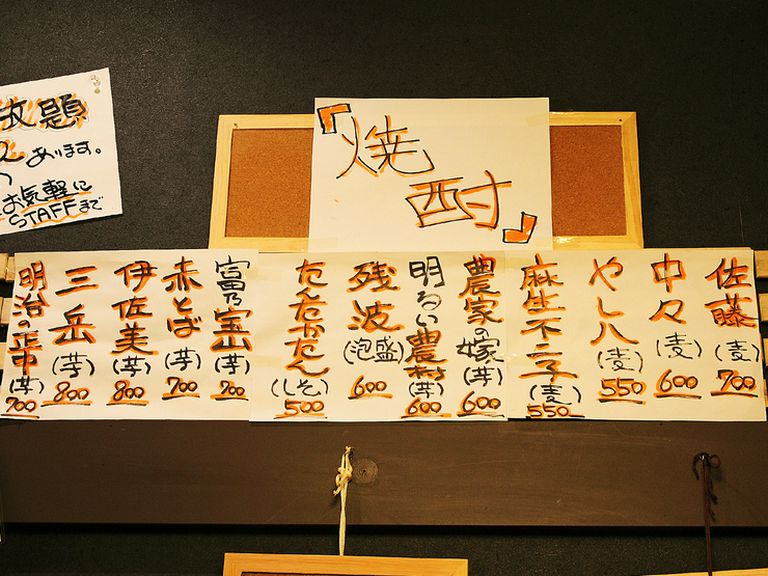 放題
あります。
お気軽に
STAFFまで
『焼
酎』
佐藤(麦)700
中々(麦)600
やしハ(麦)550
麻生不二子(麦)550
農家の嫁(芋)600
明るい農村(芋)600
残波(泡盛)600
たんたかたん(しそ)500
富乃宝山(芋)700
赤とば(芋)700
伊佐美(芋)800
三岳(芋)800
明治の正中(芋)700